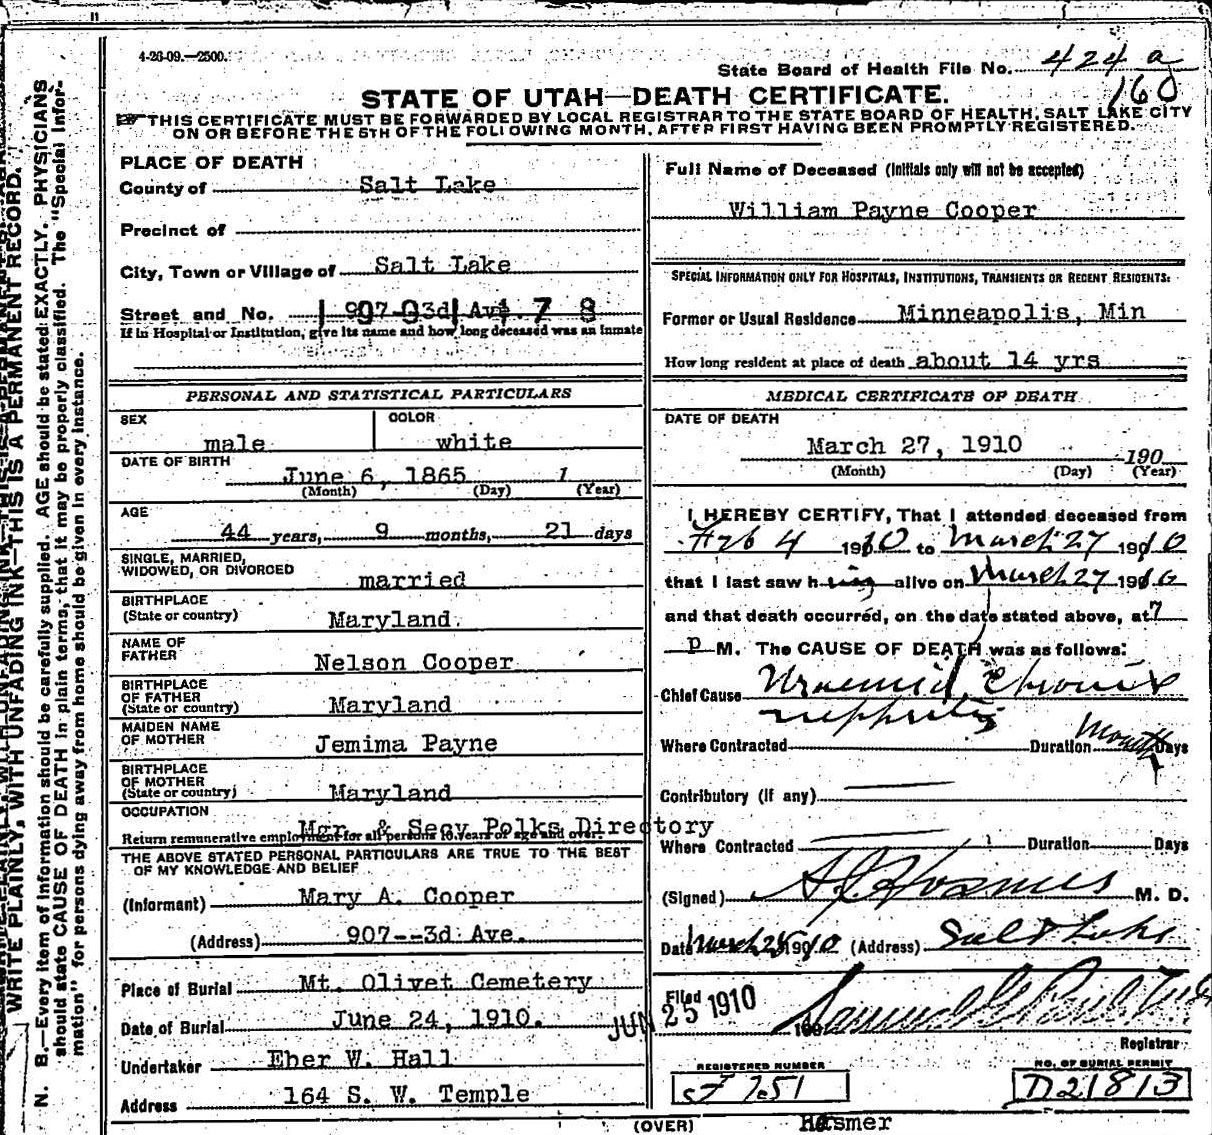 4-26-09.—2500.
State Board of Health File No. 424 a
160
STATE OF UTAH—DEATH CERTIFICATE.
THIS CERTIFICATE MUST BE FORWARDED BY LOCAL REGISTRAR TO THE STATE BOARD OF HEALTH, SALT LAKE CITY
ON OR BEFORE THE 5TH OF THE FOLLOWING MONTH, AFTER FIRST HAVING BEEN PROMPTLY REGISTERED.
WRITE PLAINLY, WITH UNFADING INK—THIS IS A PERMANENT RECORD.
N. B.—Every item of information should be carefully supplied. AGE should be stated EXACTLY. PHYSICIANS
should state CAUSE OF DEATH in plain terms, that it may be properly classified. The "Special Infor-
mation" for persons dying away from home should be given in every instance.
PLACE OF DEATH
County of Salt Lake
Precinct of
City, Town or Village of Salt Lake
Street and No. 907 3d Ave. 7 8
If in Hospital or Institution, give its name and how long deceased was an inmate
PERSONAL AND STATISTICAL PARTICULARS
SEX COLOR
male white
DATE OF BIRTH
June 6, 1865 1
(Month) (Day) (Year)
AGE
44 years, 9 months, 21 days
SINGLE, MARRIED,
WIDOWED, OR DIVORCED married
BIRTHPLACE
(State or country) Maryland.
NAME OF
FATHER Nelson Cooper
BIRTHPLACE
OF FATHER
(State or country) Maryland
MAIDEN NAME
OF MOTHER Jemima Payne
BIRTHPLACE
OF MOTHER
(State or country) Maryland
OCCUPATION
Mgr. & Secy Polks Directory
Return remunerative employment for all persons 10 years of age and over.
THE ABOVE STATED PERSONAL PARTICULARS ARE TRUE TO THE BEST
OF MY KNOWLEDGE AND BELIEF
(Informant) Mary A. Cooper
(Address) 907--3d Ave.
Place of Burial Mt. Olivet Cemetery
Date of Burial June 24, 1910.
Undertaker Eber W. Hall
Address 164 S. W. Temple
Full Name of Deceased (Initials only will not be accepted)
William Payne Cooper
SPECIAL INFORMATION ONLY FOR HOSPITALS, INSTITUTIONS, TRANSIENTS OR RECENT RESIDENTS:
Former or Usual Residence Minneapolis, Min
How long resident at place of death about 14 yrs
MEDICAL CERTIFICATE OF DEATH
DATE OF DEATH
March 27, 1910 190
(Month) (Day) (Year)
I HEREBY CERTIFY, That I attended deceased from
Feb 4 1910 to March 27 1910
that I last saw him alive on March 27 1910
and that death occurred, on the date stated above, at 7
P M. The CAUSE OF DEATH was as follows:
Chief Cause Uraemia, Chronic
nephritis
Where Contracted Duration Months Days
Contributory (if any)
Where Contracted Duration Days
(Signed) Hosmer M. D.
Date March 28 1910 (Address) Salt Lake
Filed JUN 25 1910 190
Registrar
REGISTERED NUMBER NO. OF BURIAL PERMIT
F 751 D21813
(OVER) Hosmer